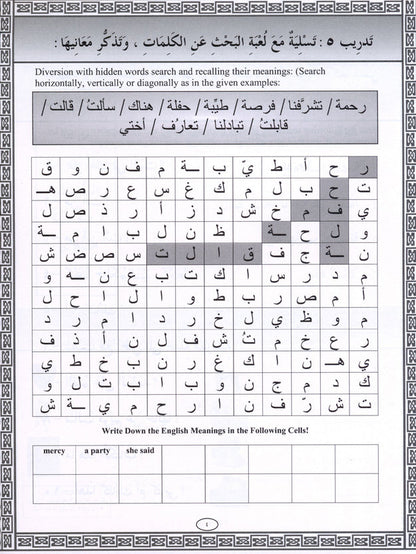 تدريب ٥ : تَسْلِيَةٌ مَعَ لُعْبَةِ البَحْثِ عَنِ الكَلِمَاتِ ، وَتَذَكُّرِ مَعَانِيهَا :
Diversion with hidden words search and recalling their meanings: (Search
horizontally, vertically or diagonally as in the given examples:
رحمة / تشرَّفنا / فرصة / طيِّبة / حفلة / هناك / سألتُ / قالت /
قابلتُ / تبادلنا / تعارُف / أختي
ر ح أ ط يّ ب ـة م ف ن و ق
ت ح ب ل م ك غ س ع ر ص هـ
ي ف م خ ش د ز أ ر ذ ص ل
و ل ح ـة ظ ن ل ب ا م ـة
ن ـة ج ف ق ا ل ت س ص ض ش
م د ر س ا ك ت ب ع ن ـه و
أ م ص ر ب ط و ا ل ا ح ل
م و ظ ي ل خ ر د ا م ر د
ر ع خ م تُ ش ف ل ن أ ذ ف
ي هـ ن ا ك غ ر ن ب خ ط ي
ك د م ج ن و ب ا ب ت ل و
ت ش رّ ف ن ا ر ح م ي ـة ش
Write Down the English Meanings in the Following Cells!
mercy a party she said